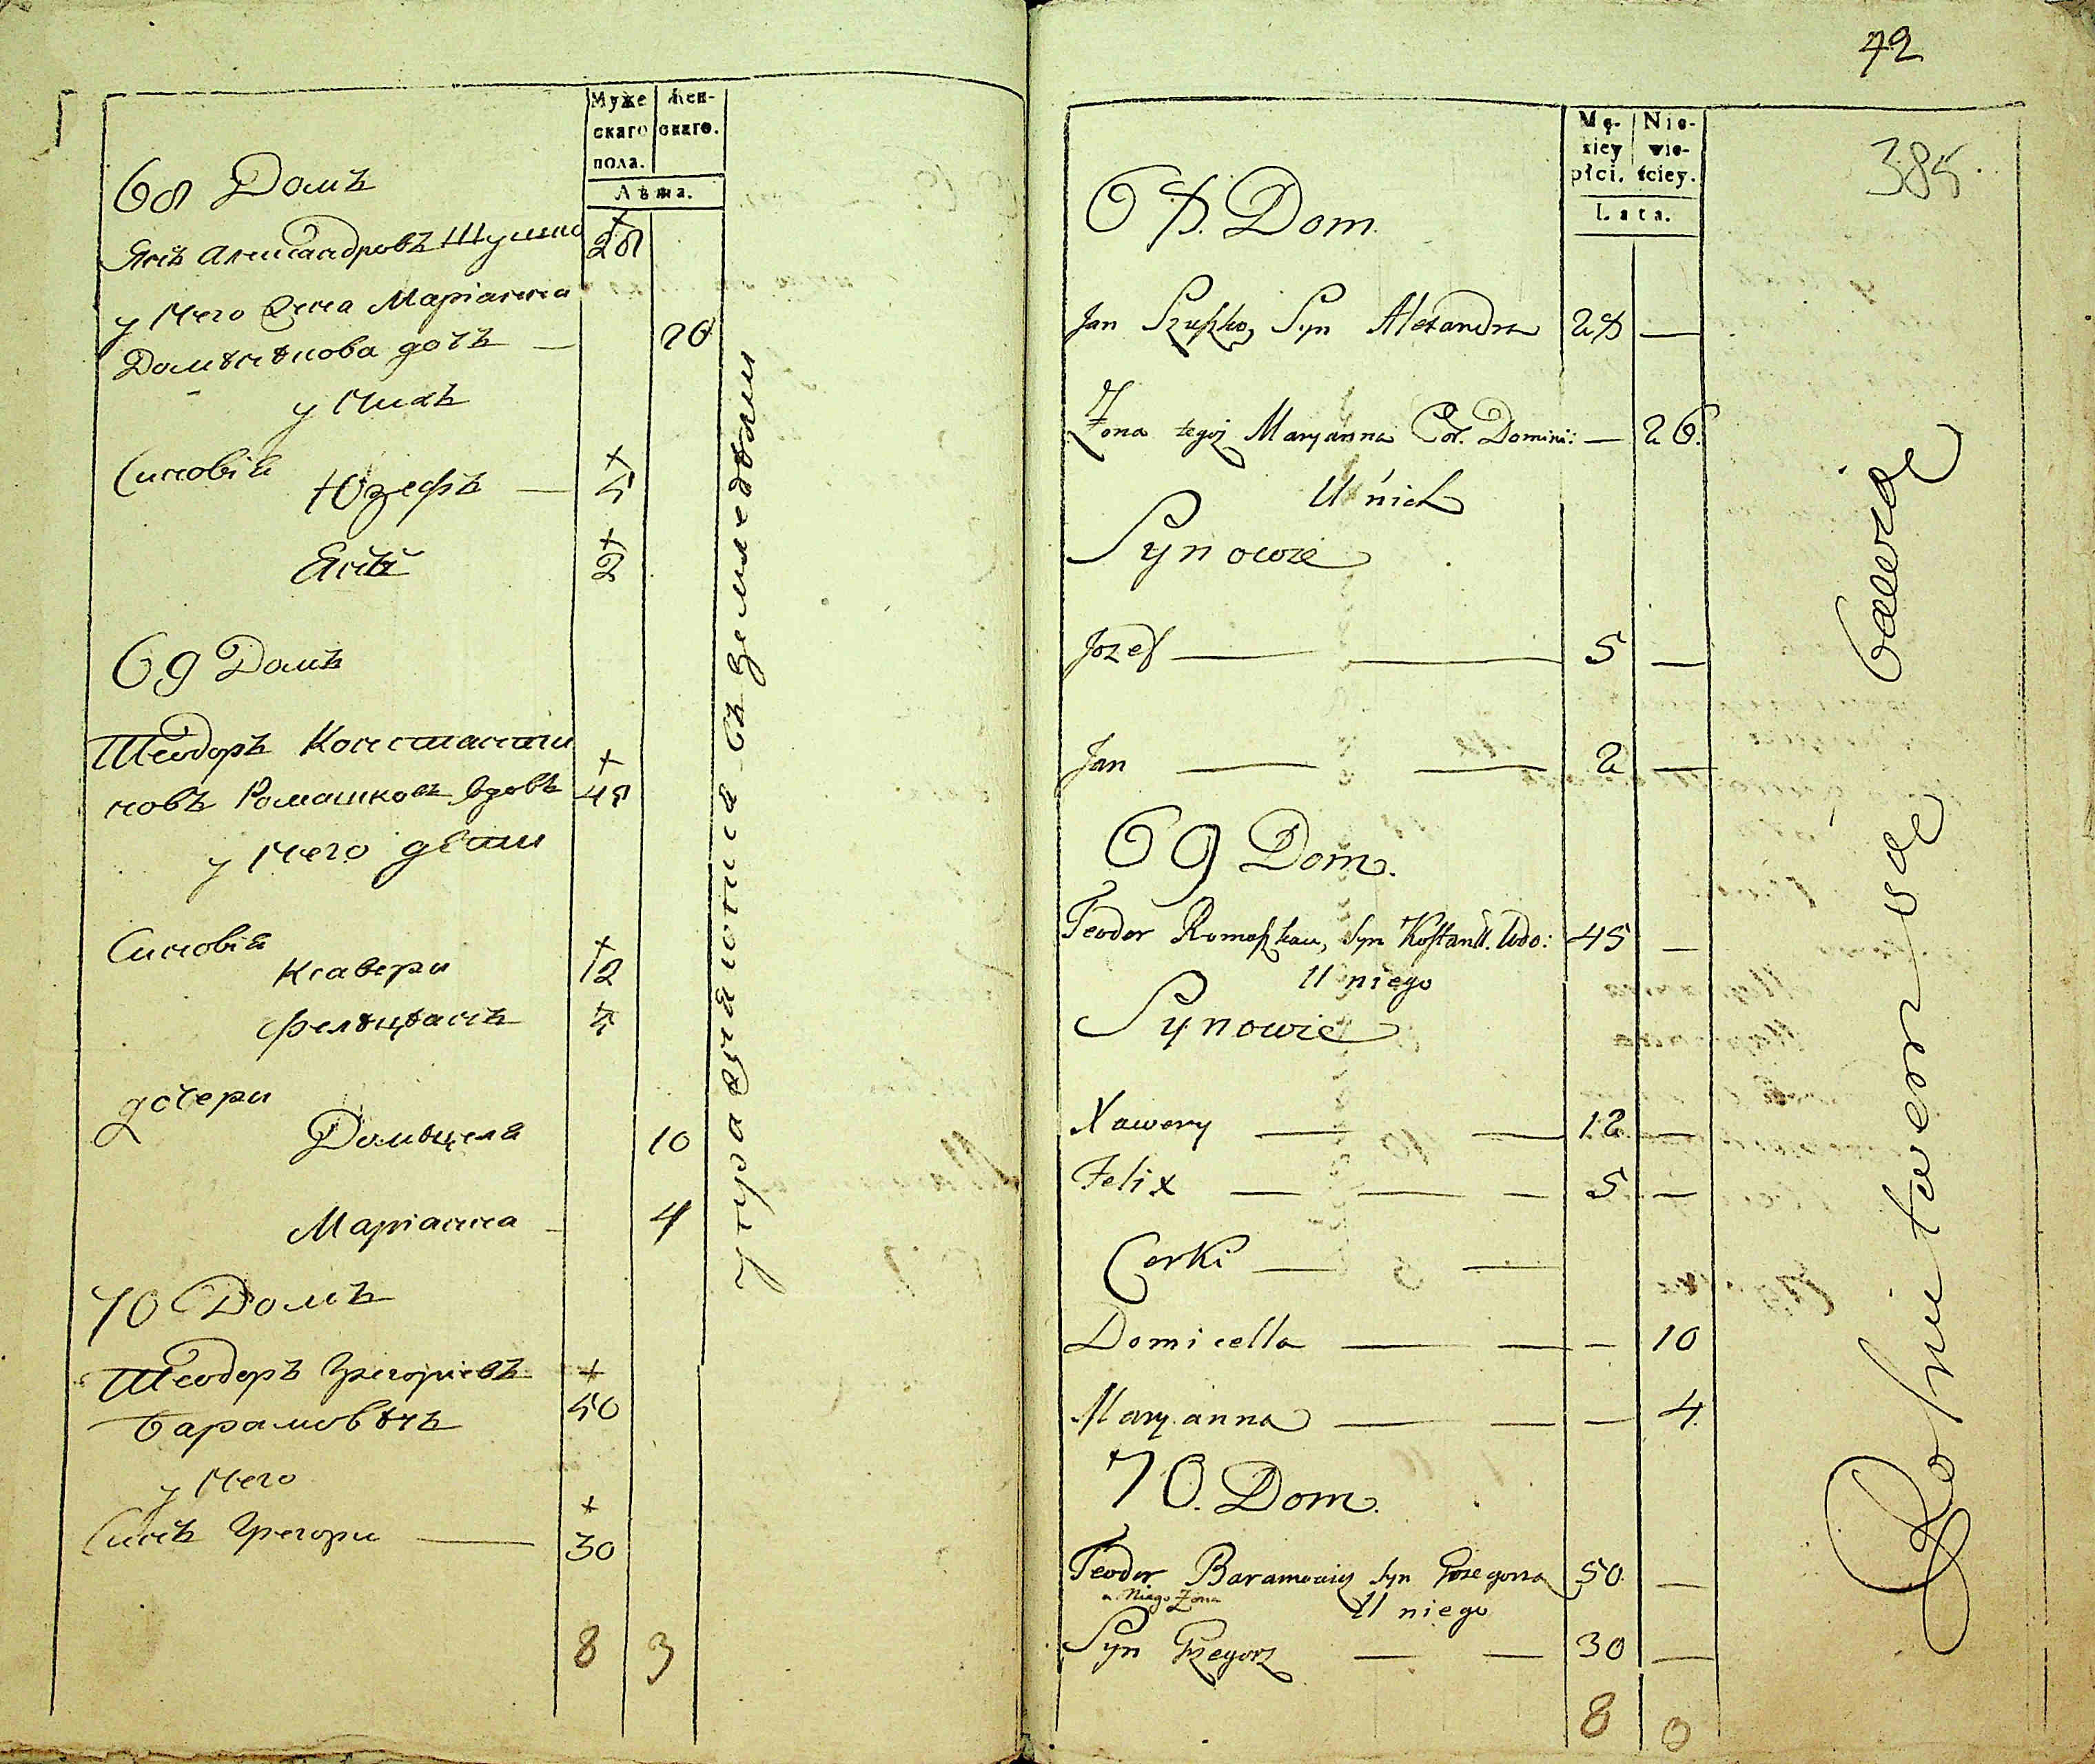 Муже Жен-
скаго скаго.
пола.
Лѣта.
68 Домъ
Янъ Александровъ Шушко 28
у Него Жена Маріанна
Доминѣкова дочъ — 26
у Нихъ
Синовія
Юзефъ — 5
Янъ 2
69 Домъ
Теодоръ Константи
новъ Ромашковъ Вдовъ 45
у Него дети
Синовія
Ксавери 12
Фелѣцѣанъ 5
дочери
Домѣцеля 10
Маріанна - 4
70 Домъ
Теодоръ Грегоріевъ
Барамовѣчъ 50
у Него
Синъ Грегори — 30
8 3
упражняются въ земледѣліи
42
385.
Mę- Nie-
zkiey wie-
płci. ściey.
Lata.
68. Dom.
Jan Szuszko, Syn Alexandra 28 —
Żona tegoż Maryanna Cor. Domini: — 26.
U nich
Synowie
Jozef — — 5 —
Jan — — 2 —
69 Dom.
Teodor Romaszkau, Syn Kostant. Wdo: 45 —
U niego
Synowie
Xawery — — 12 —
Felix — — — 5 —
Corki — —
Domicella — — — 10
Maryanna — — — 4.
70. Dom.
Teodor Baramowicz Syn Grzegorza 50 —
u Niego Żona
U niego
Syn Grzegorz — — 30 —
8 0
Rolnictwem się bawią